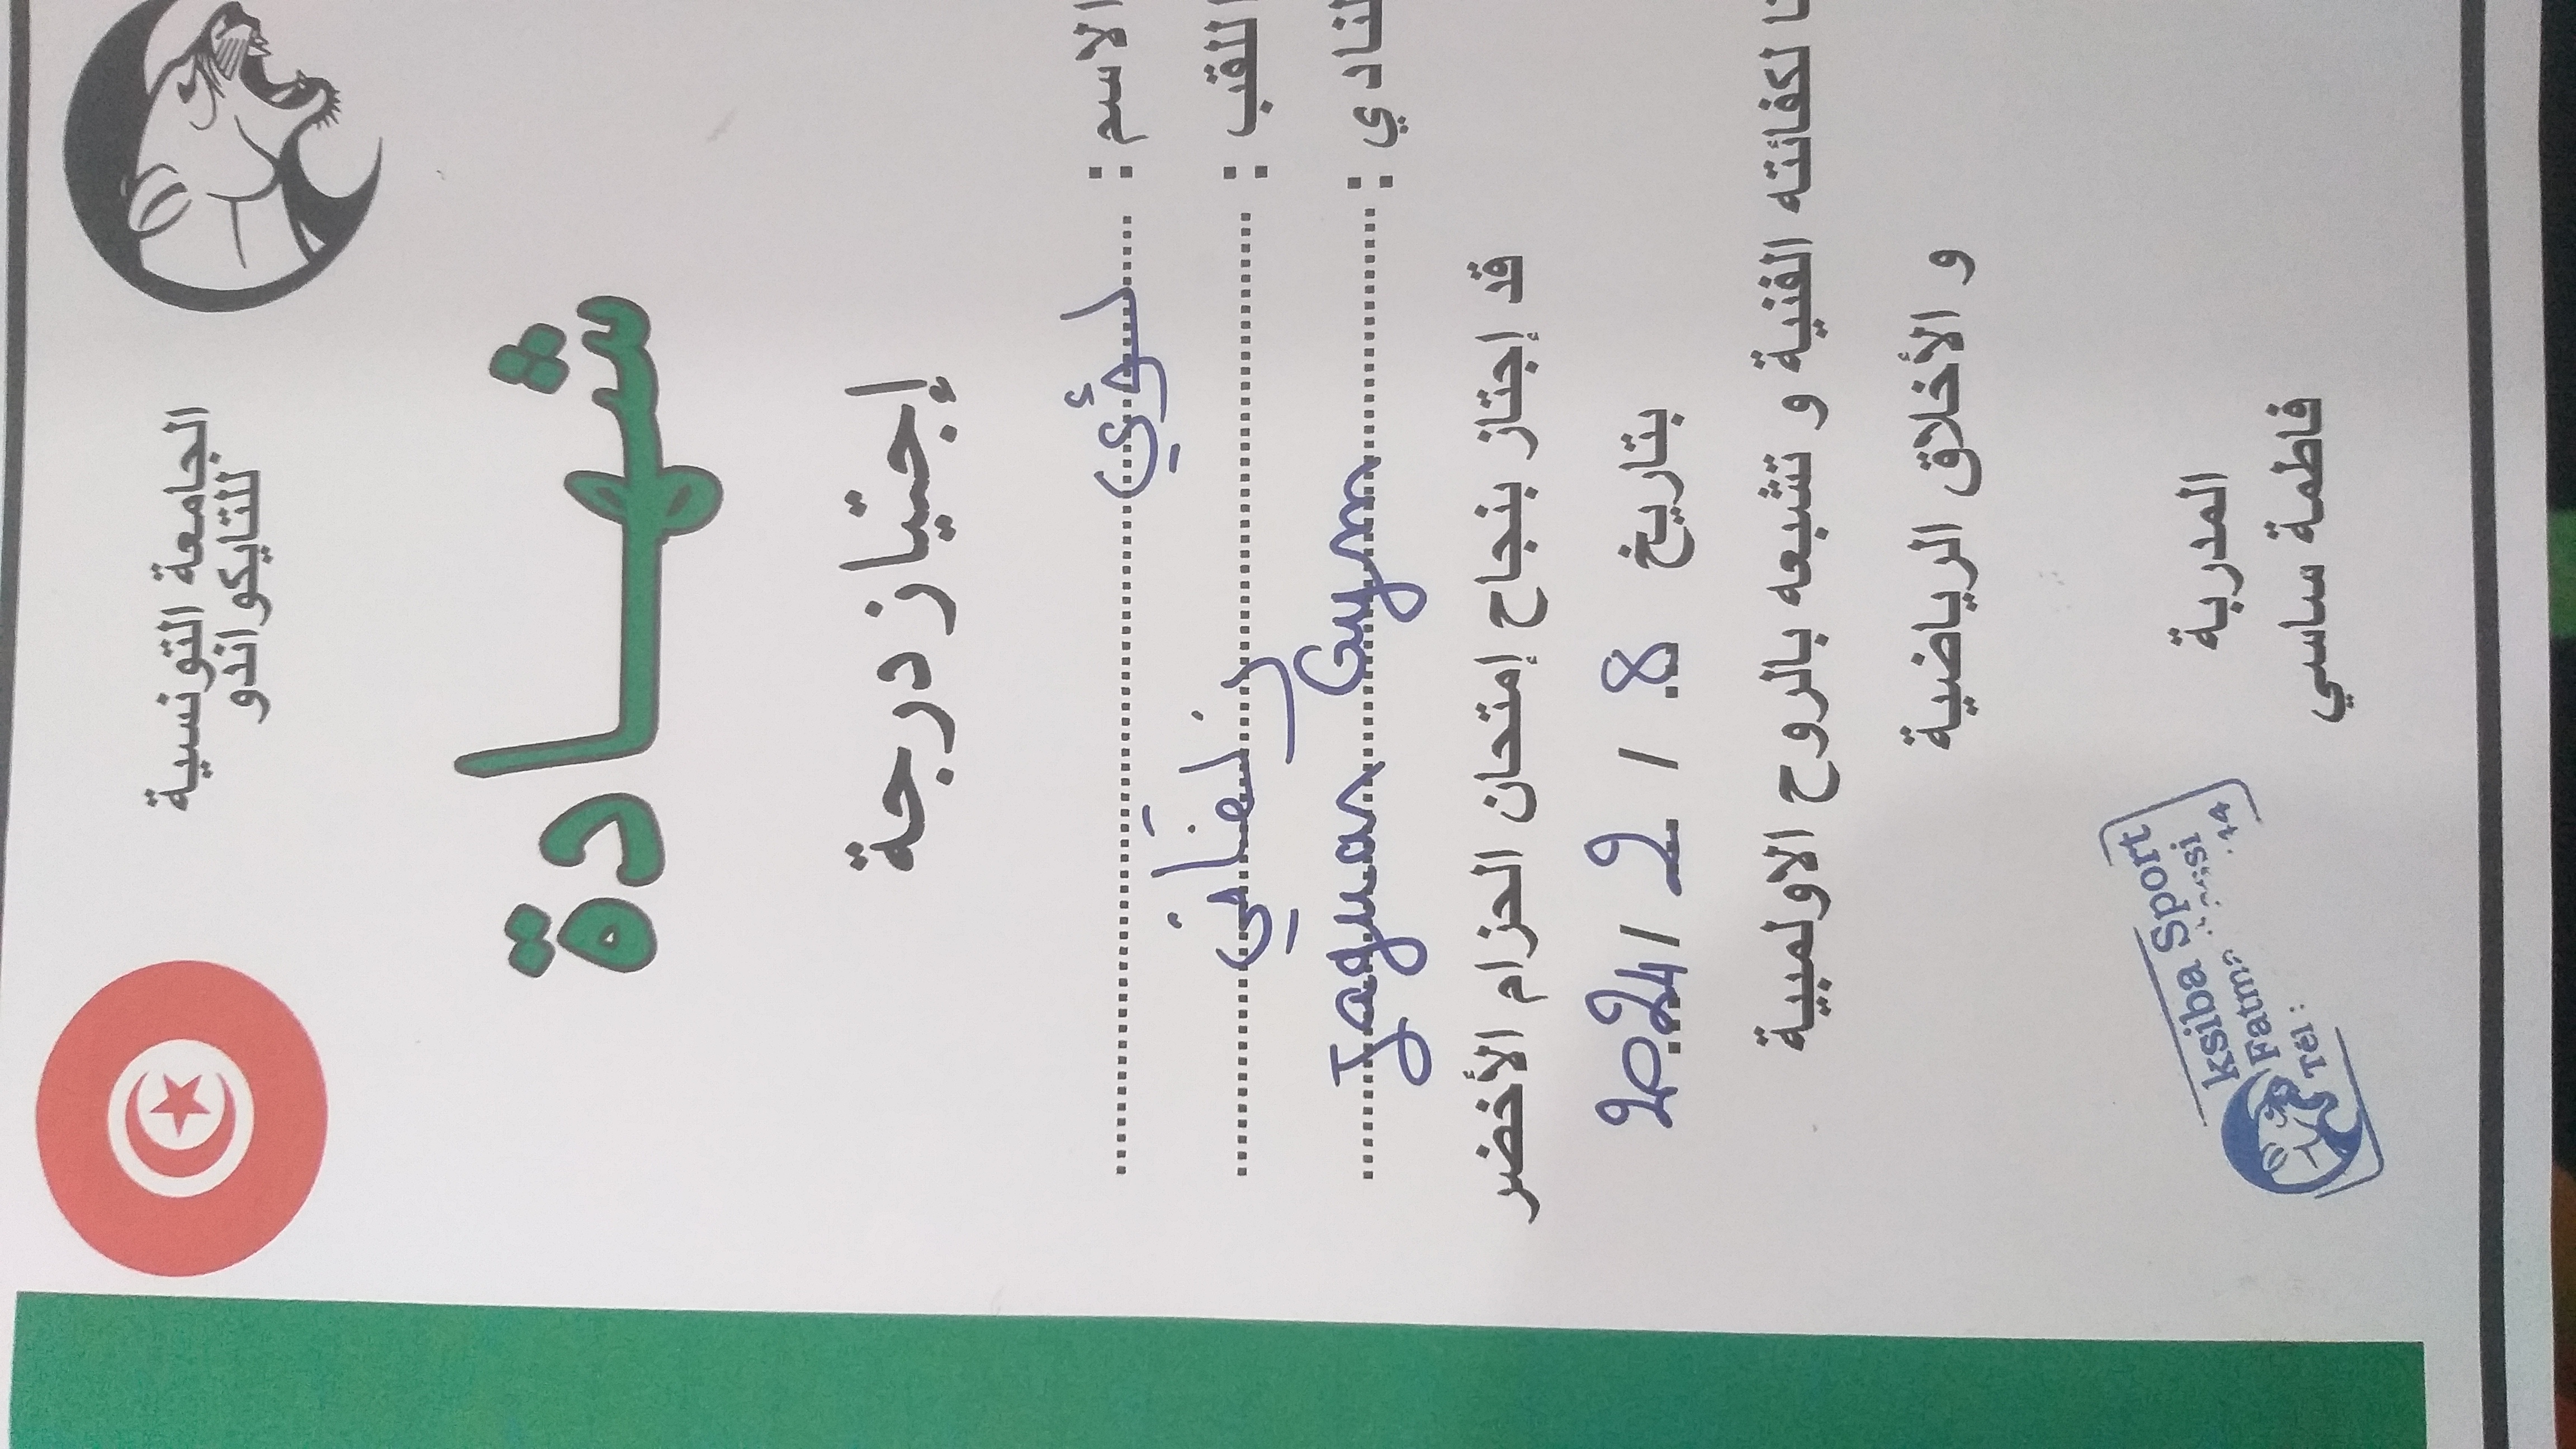 الجامعة التونسية
للتايكواندو
شهادة
إجتياز درجة
الاسم : لؤي
اللقب :
النادي : Jaguar Gym
قد إجتاز بنجاح إمتحان الحزام الأخضر
بتاريخ 8 / 2 / 2024
لكفائته الفنية و تشبعه بالروح الاولمبية
و الأخلاق الرياضية
المدربة
فاطمة ساسي
ksiba Sport
Fatma
Tel :